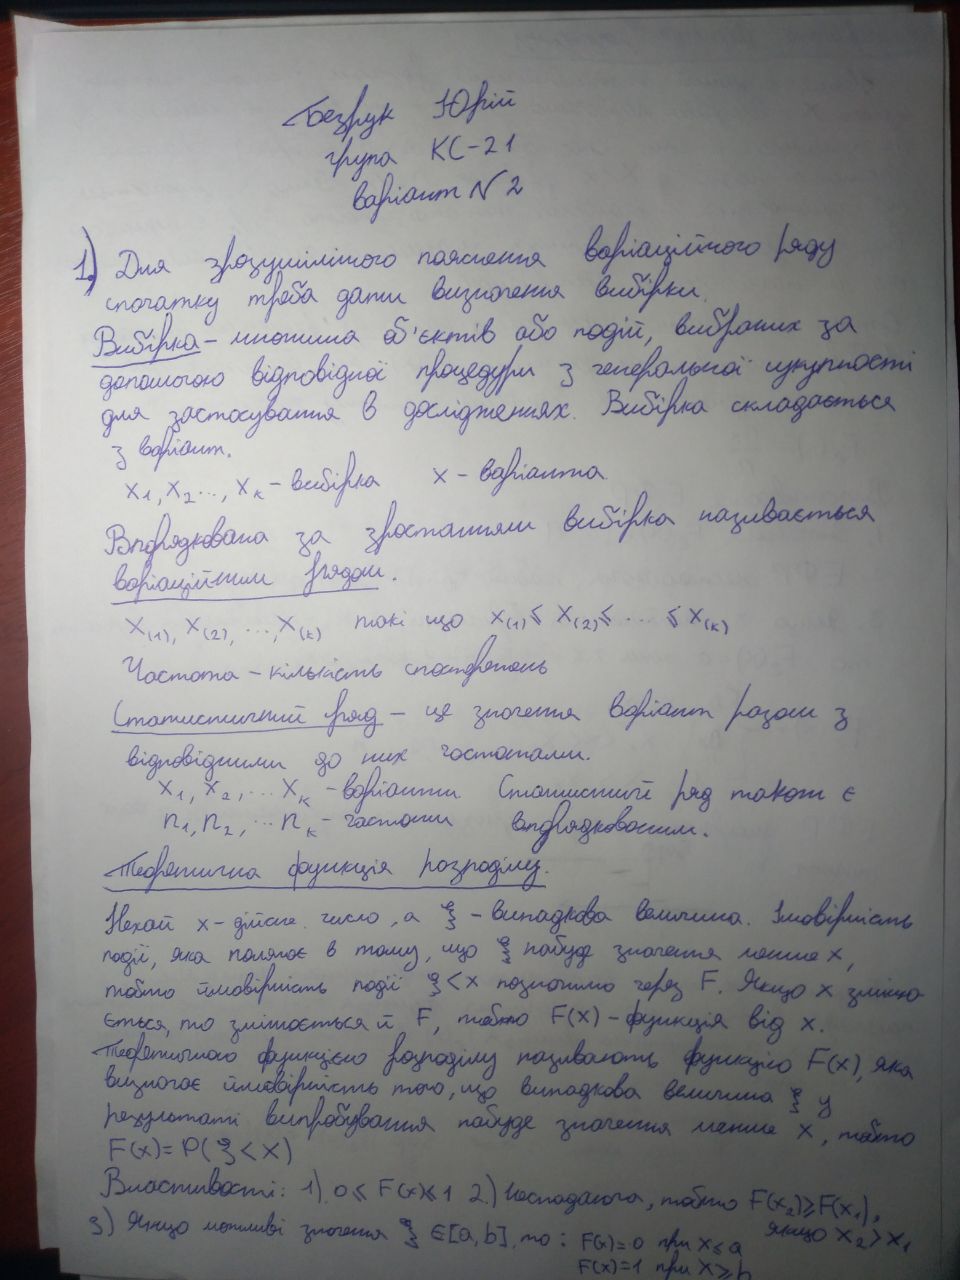 Безрук Юрій
група КС-21
варіант №2
1.) Для зрозумілішого пояснення варіаційного ряду
спочатку треба дати визначення вибірки.
Вибірка – множина об'єктів або подій, вибраних за
допомогою відповідної процедури з генеральної сукупності
для застосування в дослідженнях. Вибірка складається
з варіант.
x1, x2 ..., xk – вибірка x – варіанта
Впорядкована за зростанням вибірка називається
варіаційним рядом.
x(1), x(2), ..., x(k) такі що x(1) ≤ x(2) ≤ ... ≤ x(k)
Частота – кількість спостережень
Статистичний ряд – це значення варіант разом з
відповідними до них частотами.
x1, x2, ... xk – варіанти Статистичний ряд також є
n1, n2, ... nk – частоти впорядкованим.
Теоретична функція розподілу.
Нехай x – дійсне число, а ξ – випадкова величина. Імовірність
події, яка полягає в тому, що ξ набуде значення менше x,
тобто ймовірність події ξ < x позначимо через F. Якщо x зміню-
ється, то змінюється й F, тобто F(x) – функція від x.
Теоретичною функцією розподілу називають функцію F(x), яка
визначає ймовірність того, що випадкова величина ξ у
результаті випробування набуде значення менше x, тобто
F(x) = P(ξ < x)
Властивості: 1) 0 ≤ F(x) ≤ 1 2.) Неспадаюча, тобто F(x2) ≥ F(x1),
якщо x2 > x1
3) Якщо можливі значення ξ ∈ [a, b], то: F(x) = 0 при x ≤ a
F(x) = 1 при x ≥ b